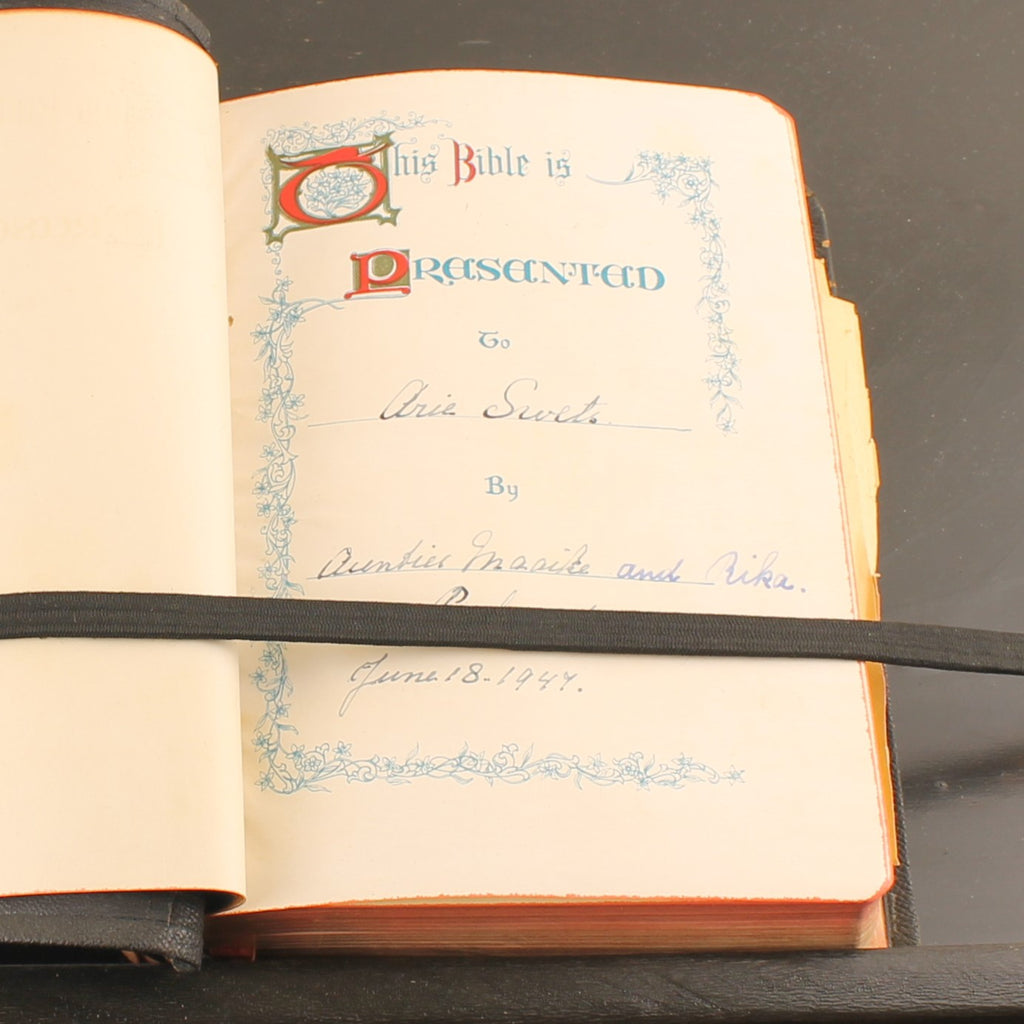 This Bible is
PRESENTED
To
Arie Swets.
By
Aunties Maaike and Rika.
June 18-1947.